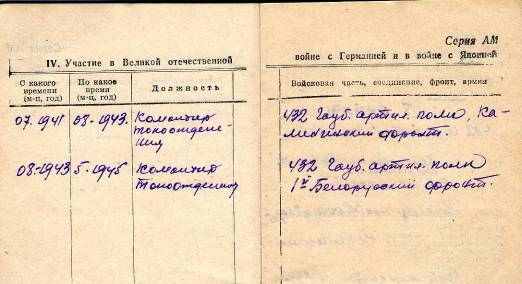 Серия АМ
IV. Участие в Великой отечественной
войне с Германией и в войне с Японией
С какого времени (м-ц, год)
По какое время (м-ц, год)
Должность
Войсковая часть, соединение, фронт, армия
07.1941
08-1943.
Командир
432 Гауб. артил. полк, Ка-
линински фронт.
08-1943
5-1945
Командир
432 Гауб. артил. полк
1й Белорусский фронт.